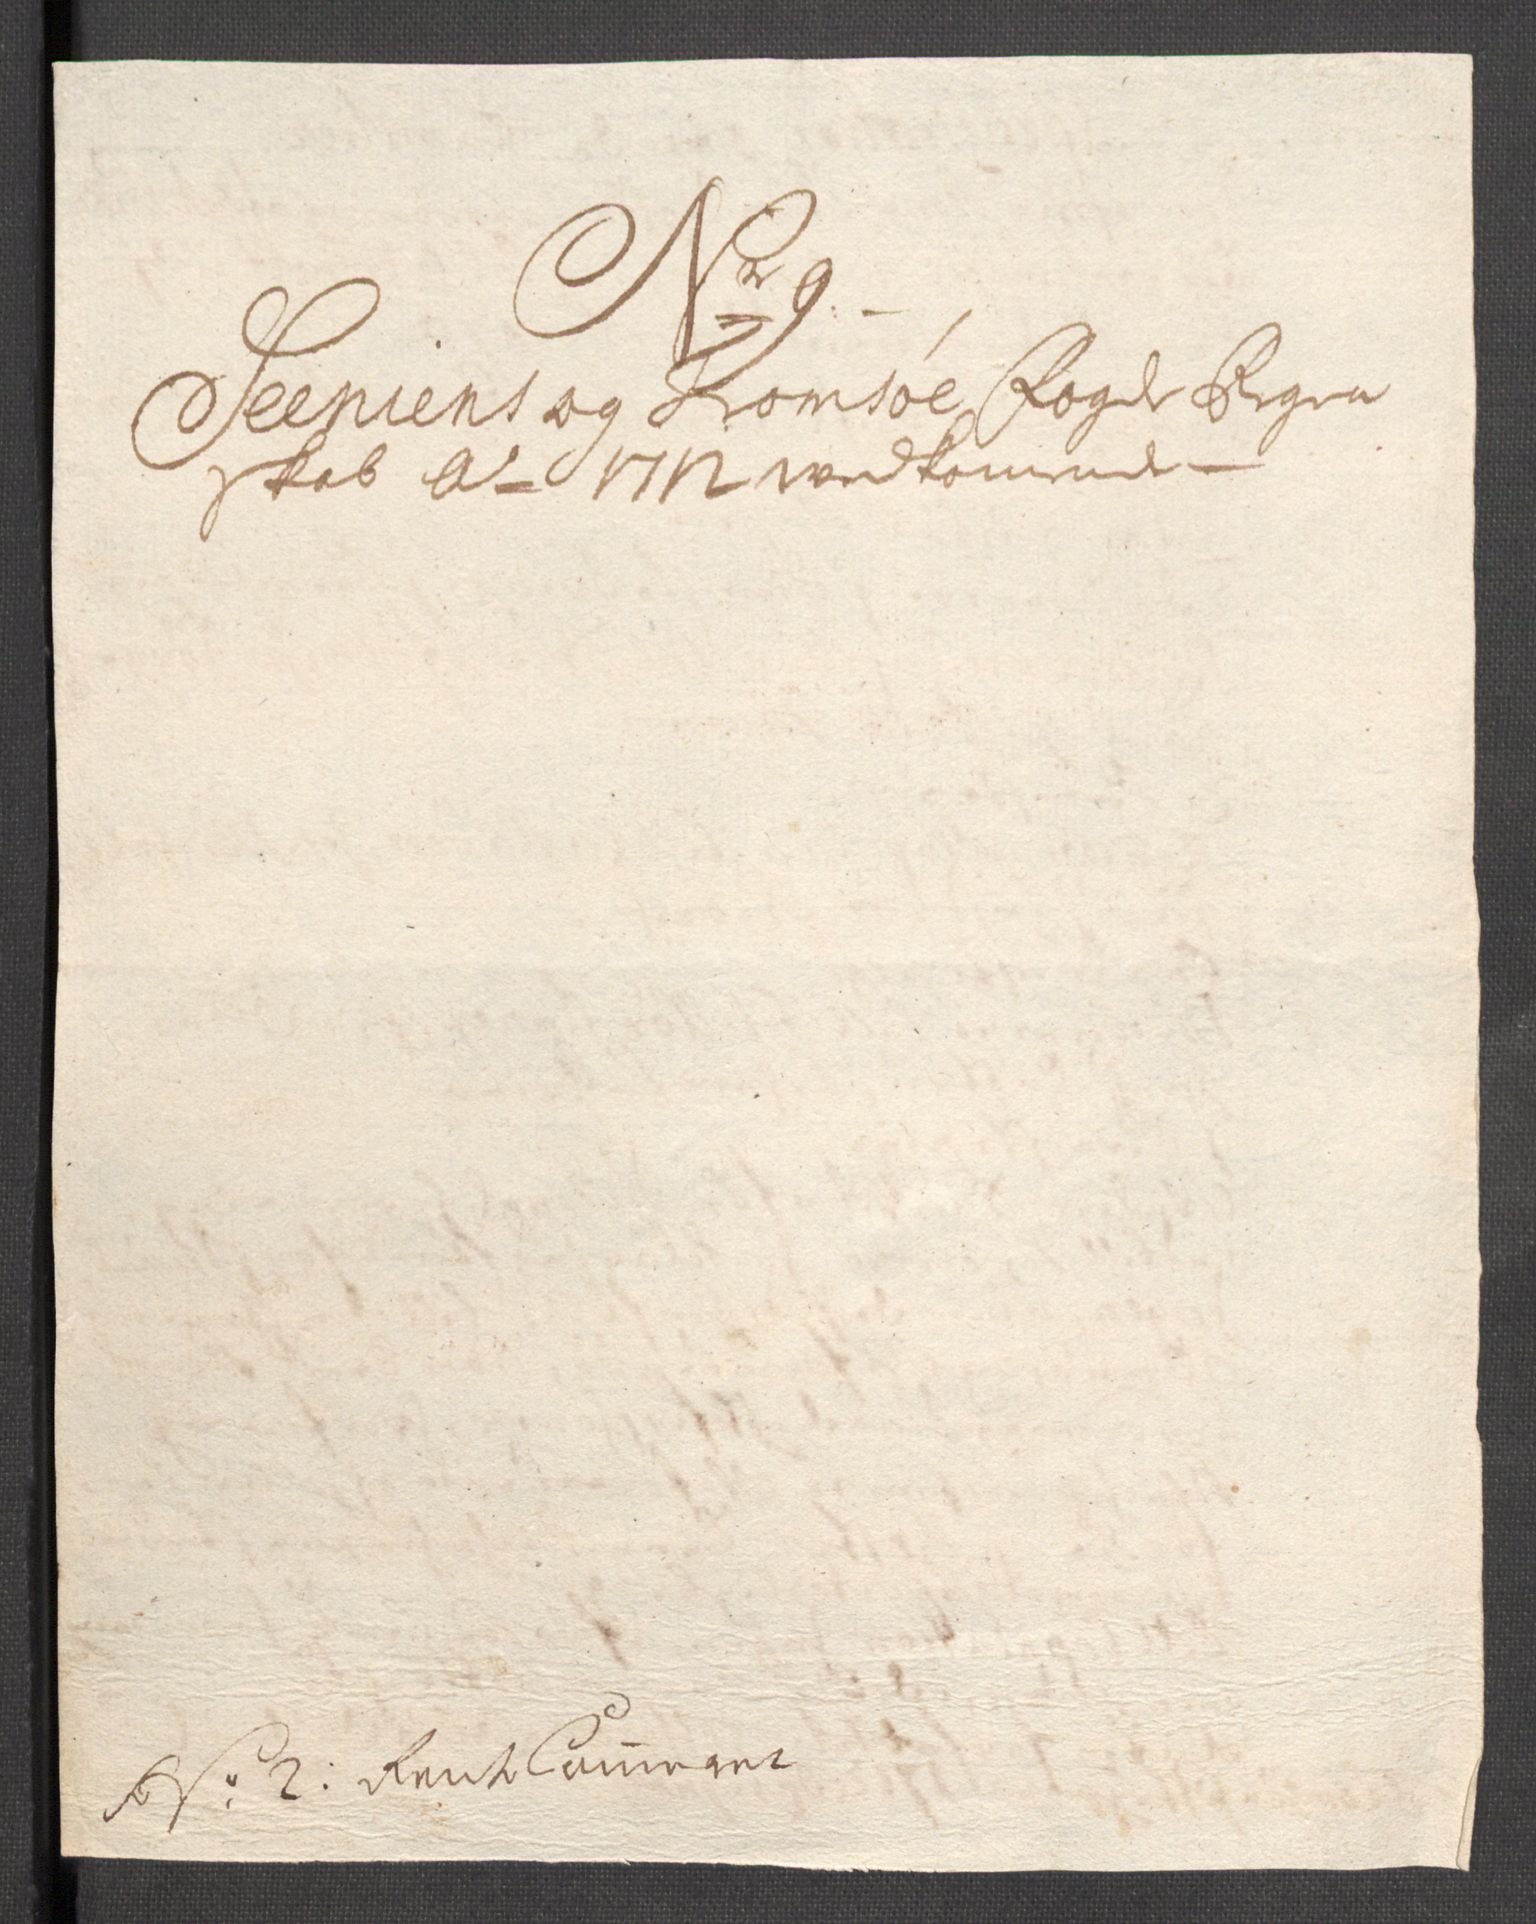 No 9.
Seeniens og Tromsøe Fogde Regn
skab Ao 1712 wedkommende
No 2: Rente Cammeret